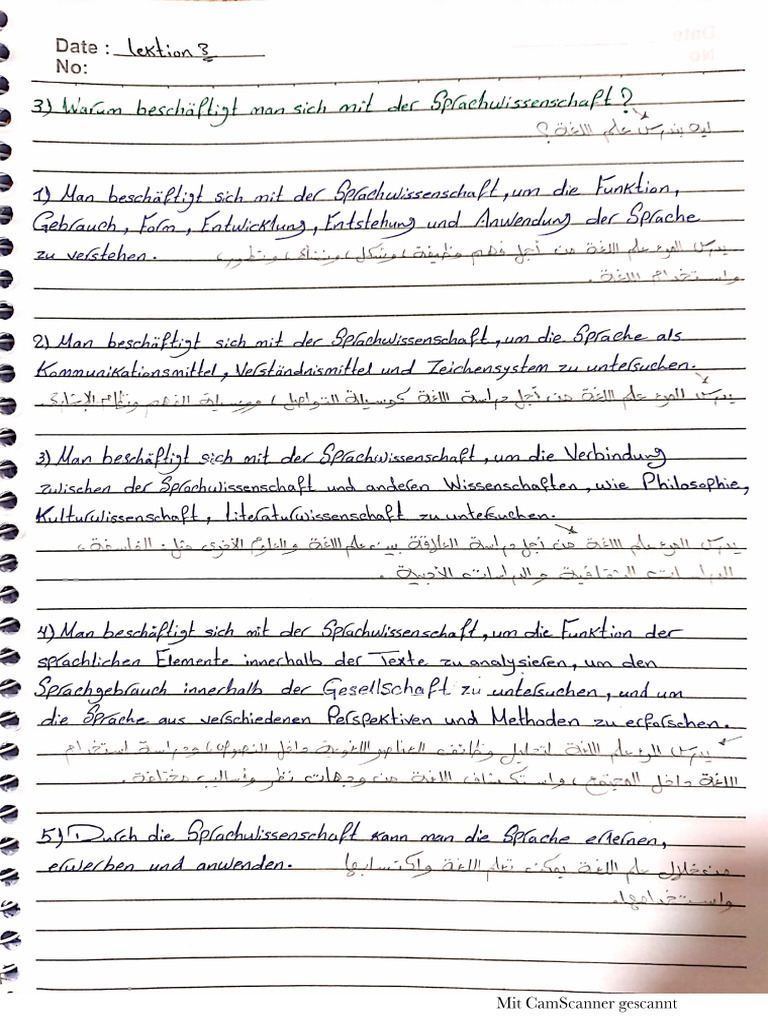 Date : Lektion 3
No:
3) Warum beschäftigt man sich mit der Sprachwissenschaft?
ليه بندرس علم اللغة؟
1) Man beschäftigt sich mit der Sprachwissenschaft, um die Funktion,
Gebrauch, Form, Entwicklung, Entstehung und Anwendung der Sprache
zu verstehen. يدرس المرء علم اللغة من أجل فهم وظيفة، وشكل، ونشأة، وتطور،
واستخدام اللغة.
2) Man beschäftigt sich mit der Sprachwissenschaft, um die Sprache als
Kommunikationsmittel, Verständnismittel und Zeichensystem zu untersuchen.
يدرس المرء علم اللغة من أجل دراسة اللغة كوسيلة التواصل، ووسيلة الفهم ونظام
3) Man beschäftigt sich mit der Sprachwissenschaft, um die Verbindung
zwischen der Sprachwissenschaft und anderen Wissenschaften, wie Philosophie,
Kulturwissenschaft, Literaturwissenschaft zu untersuchen.
يدرس المرء علم اللغة من أجل دراسة العلاقة بين علم اللغة والعلوم الأخرى مثل: الفلسفة،
الدراسات الثقافية والدراسات الأدبية.
4) Man beschäftigt sich mit der Sprachwissenschaft, um die Funktion der
sprachlichen Elemente innerhalb der Texte zu analysieren, um den
Sprachgebrauch innerhalb der Gesellschaft zu untersuchen, und um
die Sprache aus verschiedenen Perspektiven und Methoden zu erforschen.
يدرس المرء علم اللغة لتحليل وظائف العناصر اللغوية داخل النصوص، ودراسة استخدام
اللغة داخل المجتمع، واستكشاف اللغة من وجهات نظر وأساليب مختلفة.
5) Durch die Sprachwissenschaft kann man die Sprache erlernen,
erwerben und anwenden. من خلال علم اللغة يمكن تعلم اللغة واكتسابها
واستخدامها.
Mit CamScanner gescannt